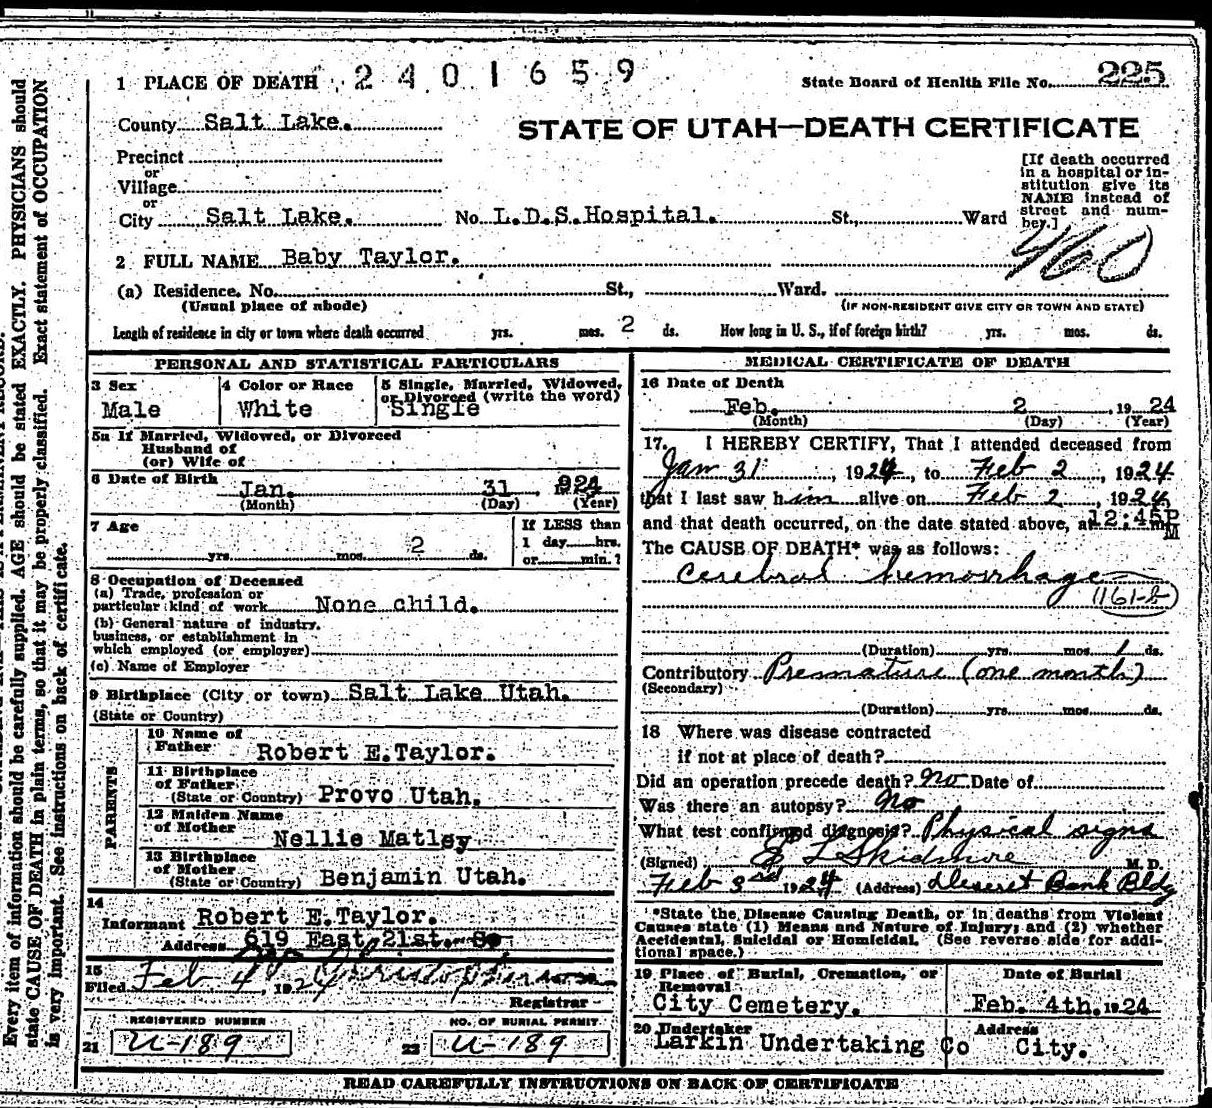 1 PLACE OF DEATH 2401659 State Board of Health File No. 225
County Salt Lake.
STATE OF UTAH—DEATH CERTIFICATE
Precinct
or
Village
or
City Salt Lake. No. L.D.S.Hospital. St., Ward
[If death occurred
in a hospital or in-
stitution give its
NAME instead of
street and num-
ber.]
460
2 FULL NAME Baby Taylor.
(a) Residence. No. St., Ward.
(Usual place of abode) (IF NON-RESIDENT GIVE CITY OR TOWN AND STATE)
Length of residence in city or town where death occurred yrs. mos. 2 ds. How long in U. S., if of foreign birth? yrs. mos. ds.
PERSONAL AND STATISTICAL PARTICULARS
3 Sex 4 Color or Race 5 Single, Married, Widowed,
or Divorced (write the word)
Male White Single
5a If Married, Widowed, or Divorced
Husband of
(or) Wife of
6 Date of Birth
Jan. 31 1924
(Month) (Day) (Year)
7 Age If LESS than
1 day hrs.
yrs. mos. 2 ds. or min.?
8 Occupation of Deceased
(a) Trade, profession or
particular kind of work None child.
(b) General nature of industry,
business, or establishment in
which employed (or employer)
(c) Name of Employer
9 Birthplace (City or town) Salt Lake Utah.
(State or Country)
PARENTS
10 Name of
Father Robert E.Taylor.
11 Birthplace
of Father
(State or Country) Provo Utah.
12 Maiden Name
of Mother
Nellie Matley
13 Birthplace
of Mother
(State or Country) Benjamin Utah.
14
Informant Robert E.Taylor.
Address 619 East 21st. So
15
Filed Feb 4, 1924
Registrar
REGISTERED NUMBER NO. OF BURIAL PERMIT
21 U-189 22 U-189
MEDICAL CERTIFICATE OF DEATH
16 Date of Death
Feb. 2 , 1924
(Month) (Day) (Year)
17. I HEREBY CERTIFY, That I attended deceased from
Jan 31 , 1924, to Feb 2 , 1924
that I last saw him alive on Feb 2 , 1924,
and that death occurred, on the date stated above, at 12:45P m
M
The CAUSE OF DEATH* was as follows:
Cerebral hemorrhage
161-b
(Duration) yrs. mos. 1 ds.
Contributory Premature (one month)
(Secondary)
(Duration) yrs. mos. ds.
18 Where was disease contracted
if not at place of death?
Did an operation precede death? No Date of
Was there an autopsy? No
What test confirmed diagnosis? Physical signs
(Signed) E L Skidmore M. D.
Feb 3rd 1924 (Address) Deseret Bank Bldg
*State the Disease Causing Death, or in deaths from Violent
Causes state (1) Means and Nature of Injury; and (2) whether
Accidental, Suicidal or Homicidal. (See reverse side for addi-
tional space.)
19 Place of Burial, Cremation, or Date of Burial
Removal
City Cemetery. Feb. 4th. 1924
20 Undertaker Address
Larkin Undertaking Co City.
READ CAREFULLY INSTRUCTIONS ON BACK OF CERTIFICATE
Every item of information should be carefully supplied. AGE should be stated EXACTLY. PHYSICIANS should
state CAUSE OF DEATH in plain terms, so that it may be properly classified. Exact statement of OCCUPATION
is very important. See instructions on back of certificate.